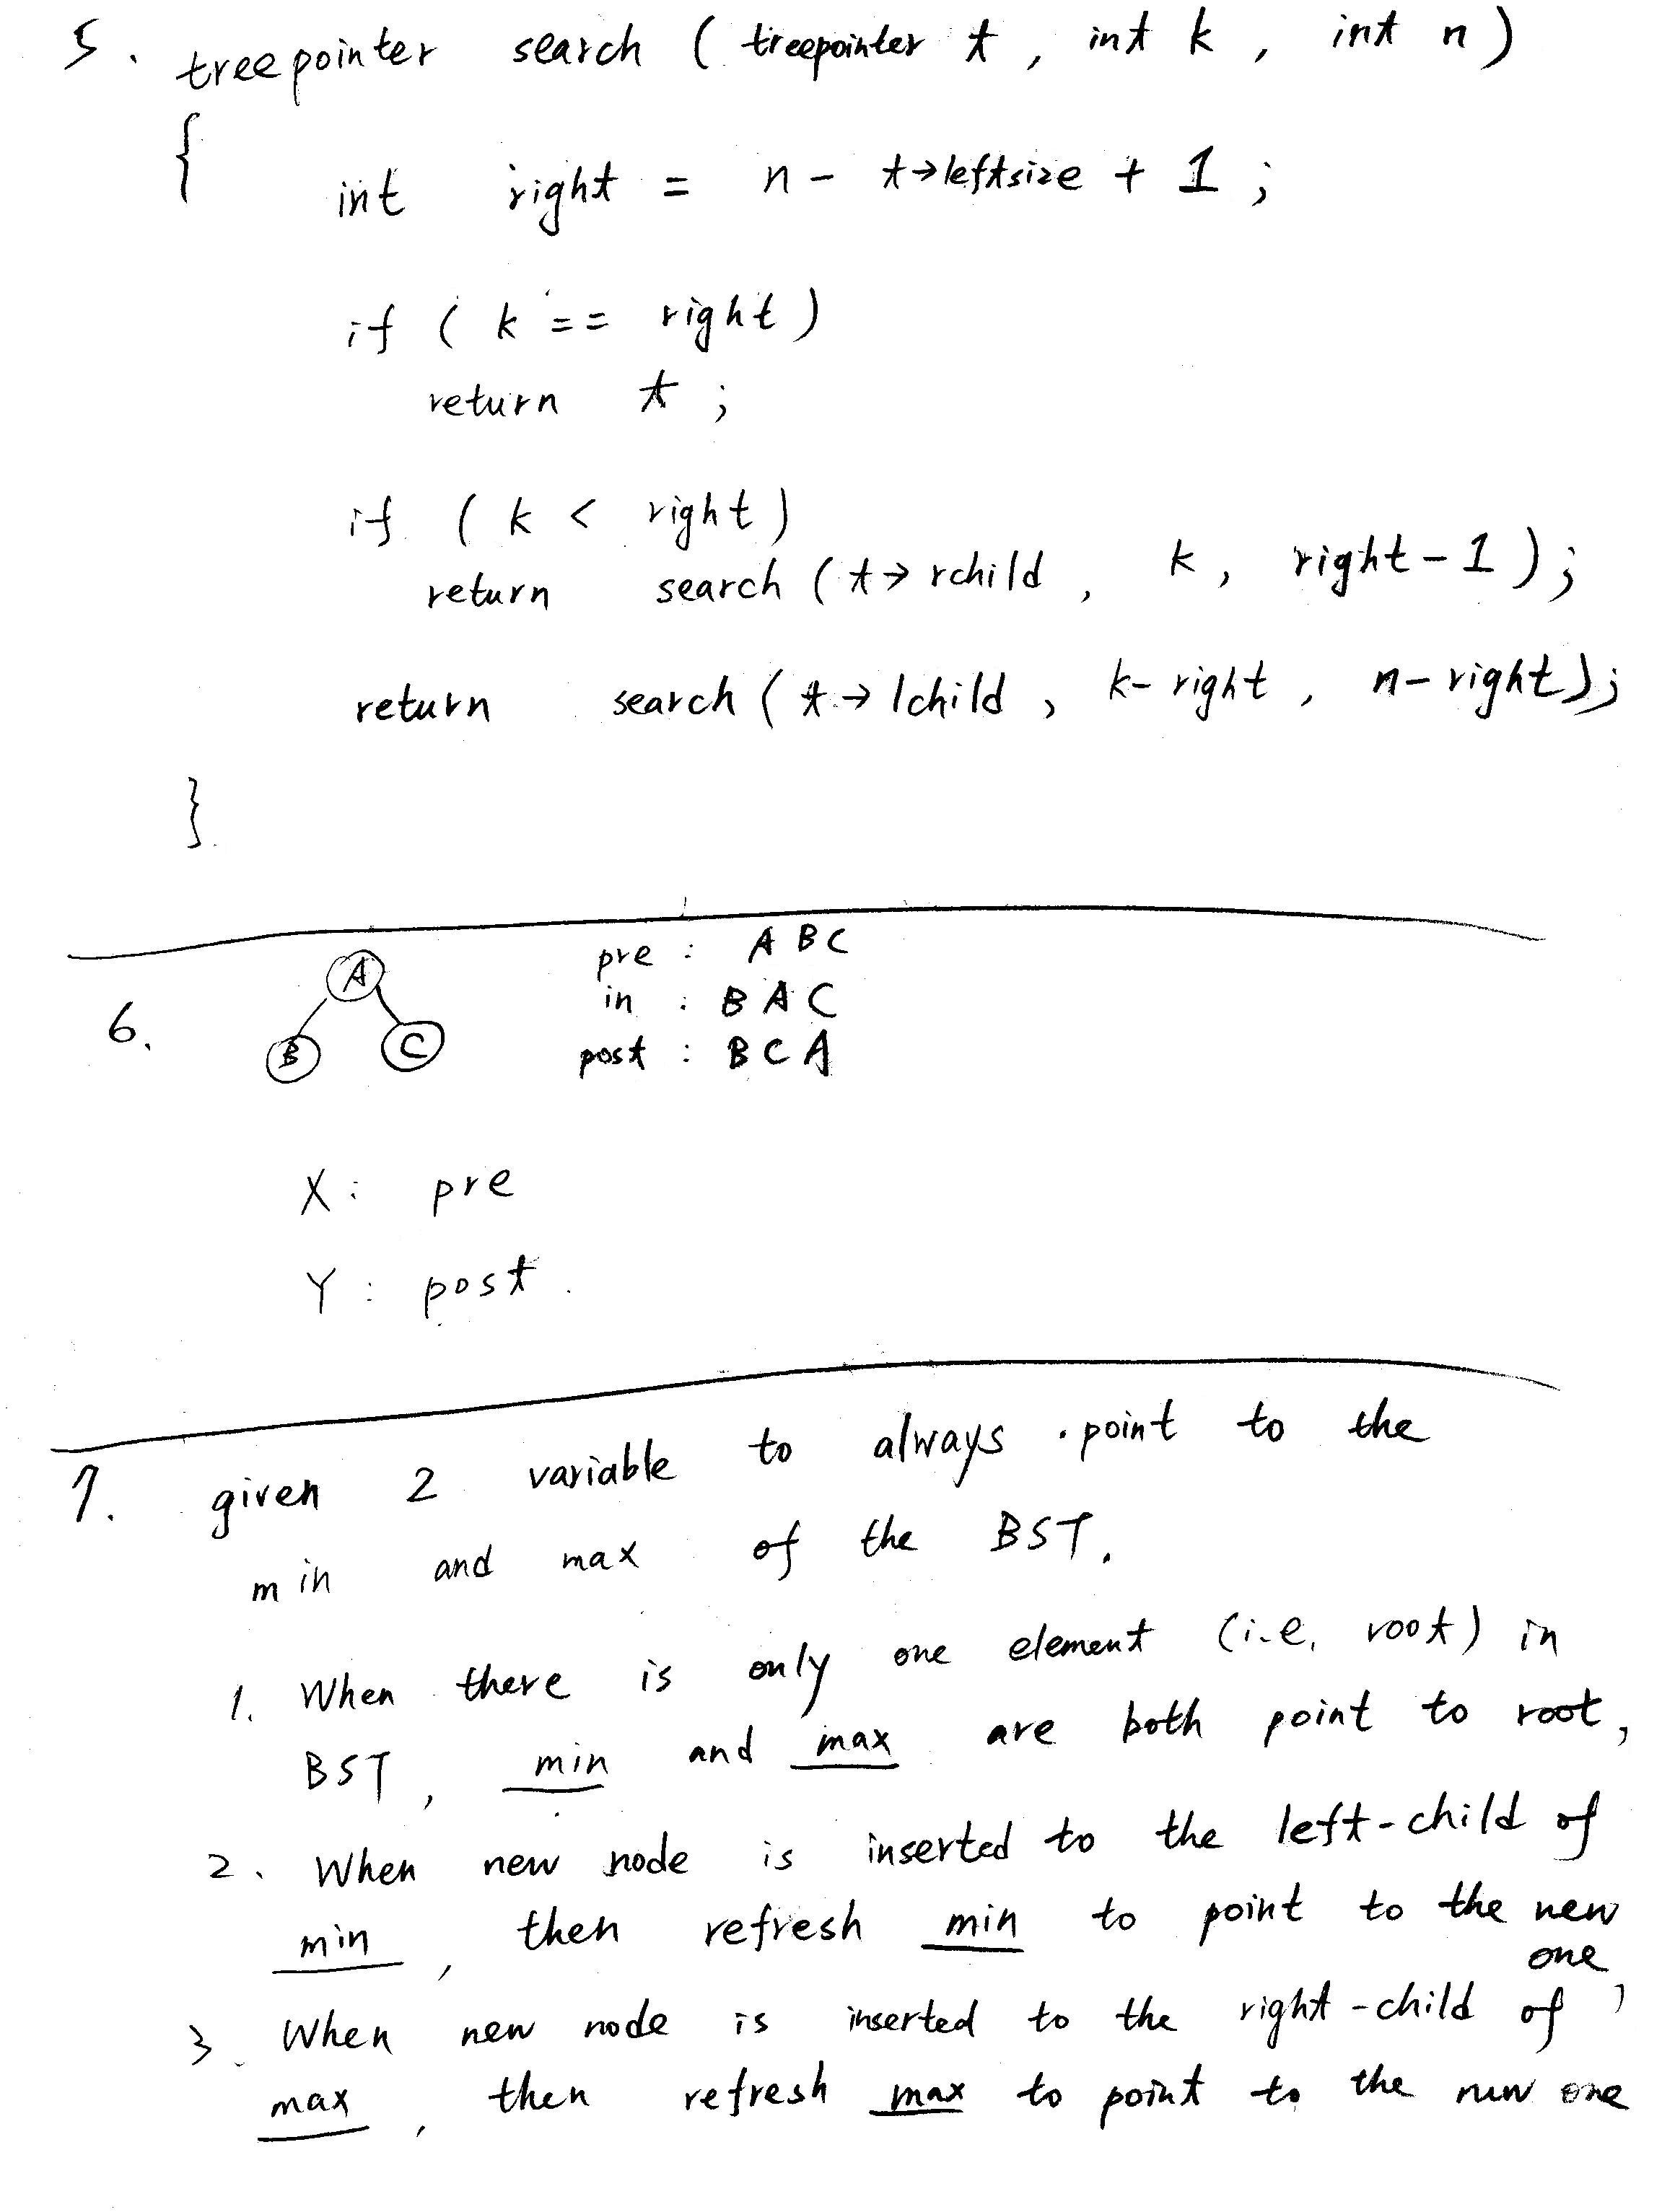 5. treepointer search ( treepointer t , int k , int n )
{
int right = n - t→leftsize + 1 ;
if ( k == right )
return t ;
if ( k < right )
return search ( t→ rchild , k , right - 1 ) ;
return search ( t → lchild , k - right , n - right ) ;
}
6.
A
B C
pre : A B C
in : B A C
post : B C A
X : pre
Y : post .
7. given 2 variable to always point to the
min and max of the BST.
1. When there is only one element (i.e. root) in
BST, min and max are both point to root,
2. When new node is inserted to the left-child of
min , then refresh min to point to the new
one ,
3. When new node is inserted to the right-child of
max , then refresh max to point to the new one